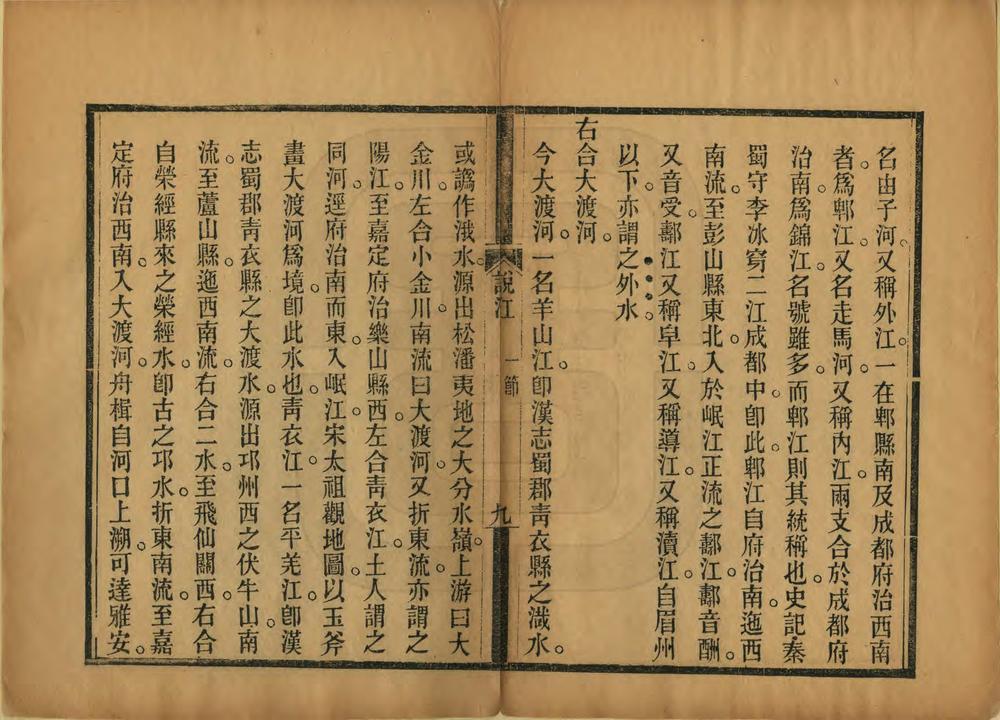 名由子河。又稱外江。一在郫縣南及成都府治西南
者。爲郫江。又名走馬河。又稱內江。兩支合於成都府
治南。爲錦江。名號雖多。而郫江則其統稱也。史記秦
蜀守李冰穿二江成都中。卽此郫江自府治南。迤西
南流。至彭山縣東北。入於岷江正流之鄩江。鄩音酬。
又音受。鄩江又稱皁江。又稱導江。又稱瀆江。自眉州
以下。亦謂之外水。
右合大渡河。
今大渡河。一名羊山江。卽漢志蜀郡靑衣縣之渽水。
說江 一節 九
或譌作涐水。源出松潘夷地之大分水嶺。上游曰大
金川。左合小金川。南流曰大渡河。又折東流。亦謂之
陽江。至嘉定府治樂山縣西。左合靑衣江。土人謂之
同河。逕府治南而東。入岷江。宋太祖觀地圖。以玉斧
畫大渡河爲境。卽此水也。靑衣江。一名平羌江。卽漢
志蜀郡靑衣縣之大渡水。源出邛州西之伏牛山。南
流。至蘆山縣。迤西南流。右合二水。至飛仙關西。右合
自榮經縣來之榮經水。卽古之邛水。折東南流。至嘉
定府治西南。入大渡河。舟楫自河口上溯。可達雅安。